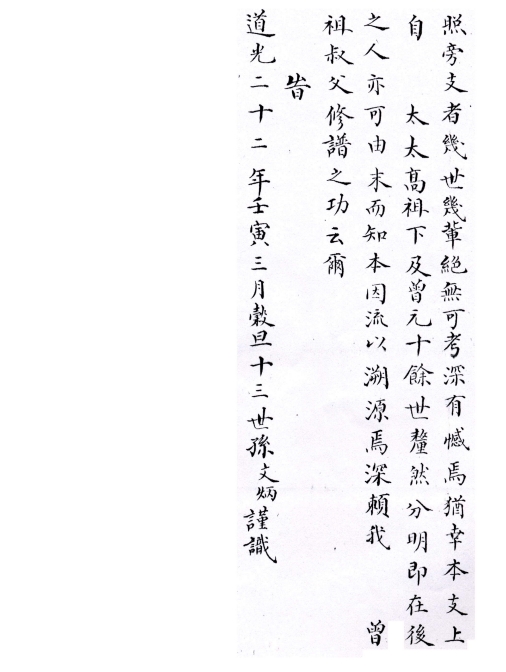 照旁支者幾世幾輩絕無可考深有憾焉猶幸本支上
自 太太高祖下及曾元十餘世釐然分明即在後
之人亦可由末而知本因流以溯源焉深賴我 曾
祖叔父修譜之功云爾
旹
道光二十二年壬寅三月穀旦十三世孫文炳謹識